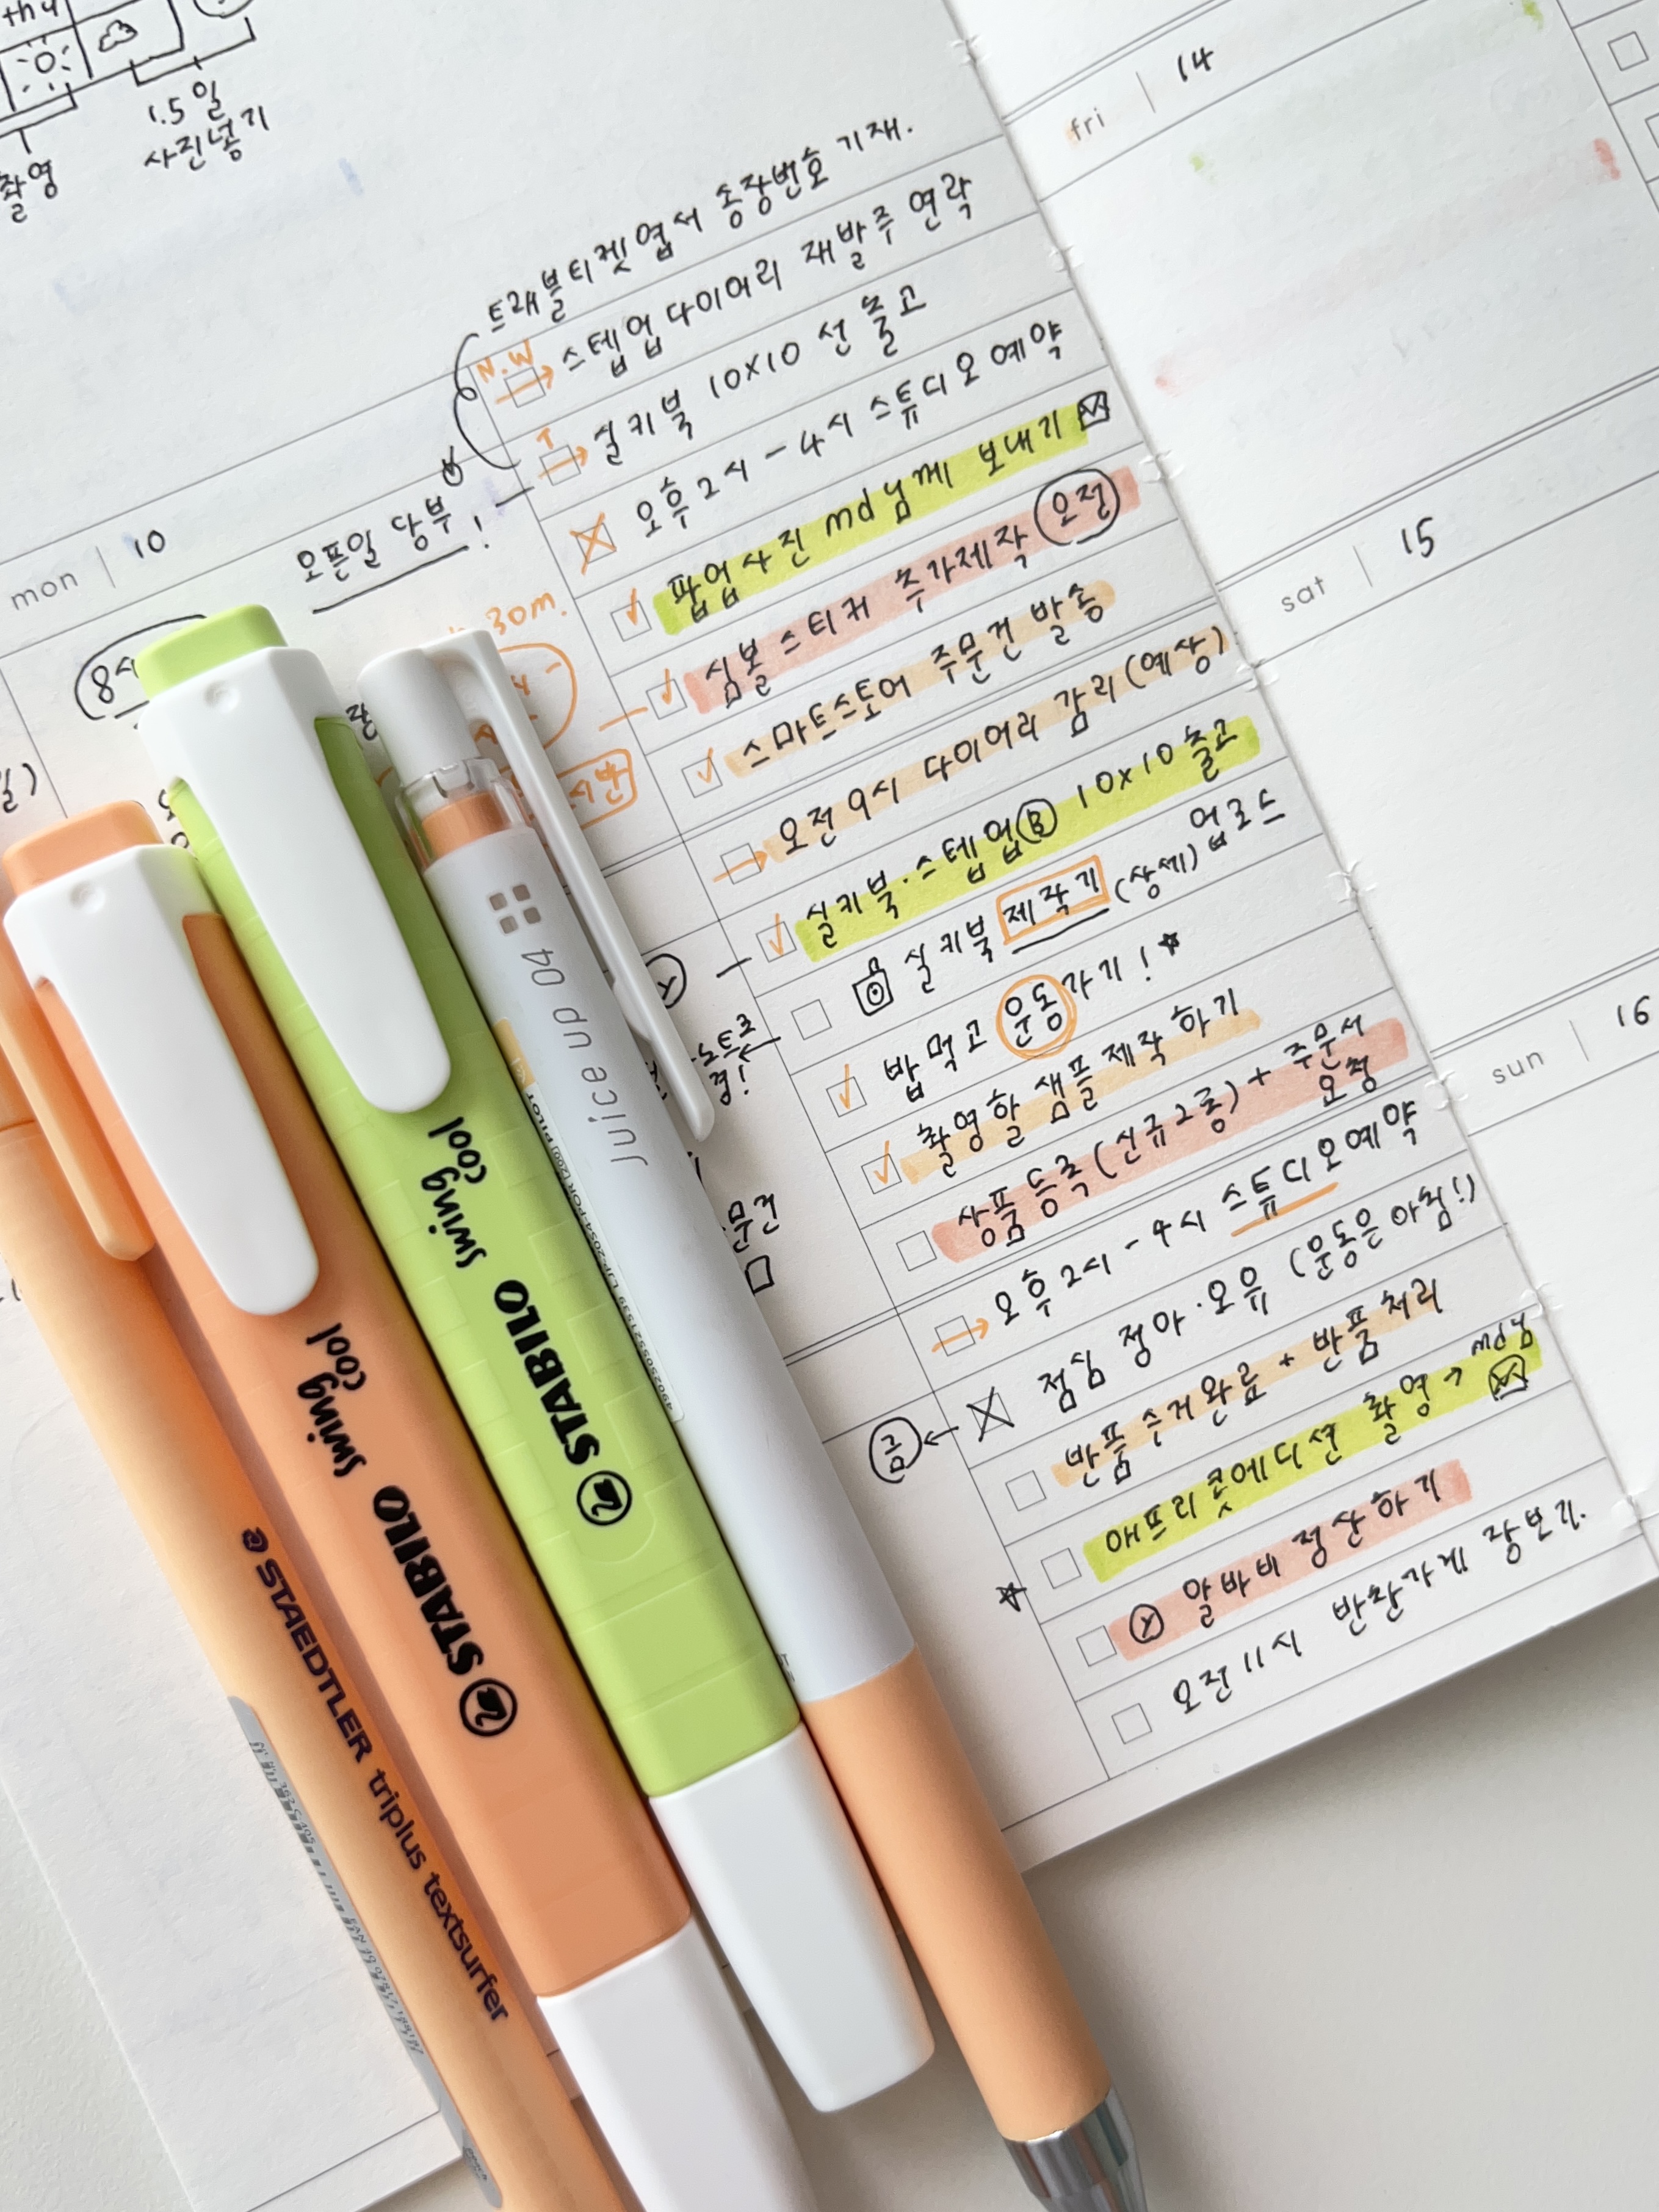 thu
1.5일
사진넣기
촬영
트래블티켓엽서 송장번호 기재.
N.W
스텝업 다이어리 재발주 연락
T
실키북 10x10 선 출고
오후 2시 - 4시 스튜디오 예약
팝업사진 md님께 보내기
심볼스티커 추가제작 오전
스마트스토어 주문건 발송
mon | 10
오픈일 당부!
30m.
시반
8시
오전 9시 다이어리 감리 (예상)
실키북·스텝업Ⓑ 10x10 출고
실키북 제작기 (상세) 업로드
밥먹고 운동가기!
촬영할 샘플 제작하기
상품등록 (신규2종) + 주문서
요청
노트로
경!
문건
오후 2시 - 4시 스튜디오예약
점심 정아·오유 (운동은 아침!)
금 ←
반품수거완료 + 반품처리
애프리콧에디션 촬영 → md님
ⓧ 알바비 정산하기
오전 11시 반찬가게 장보기.
fri | 14
sat | 15
sun | 16
Juice up 04
PILOT
STABILO swing cool
STABILO swing cool
STAEDTLER triplus textsurfer